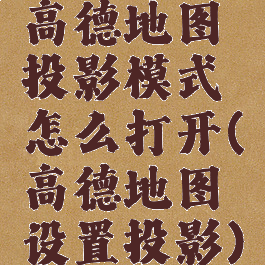 高德地图
投影模式
怎么打开(
高德地图
设置投影)